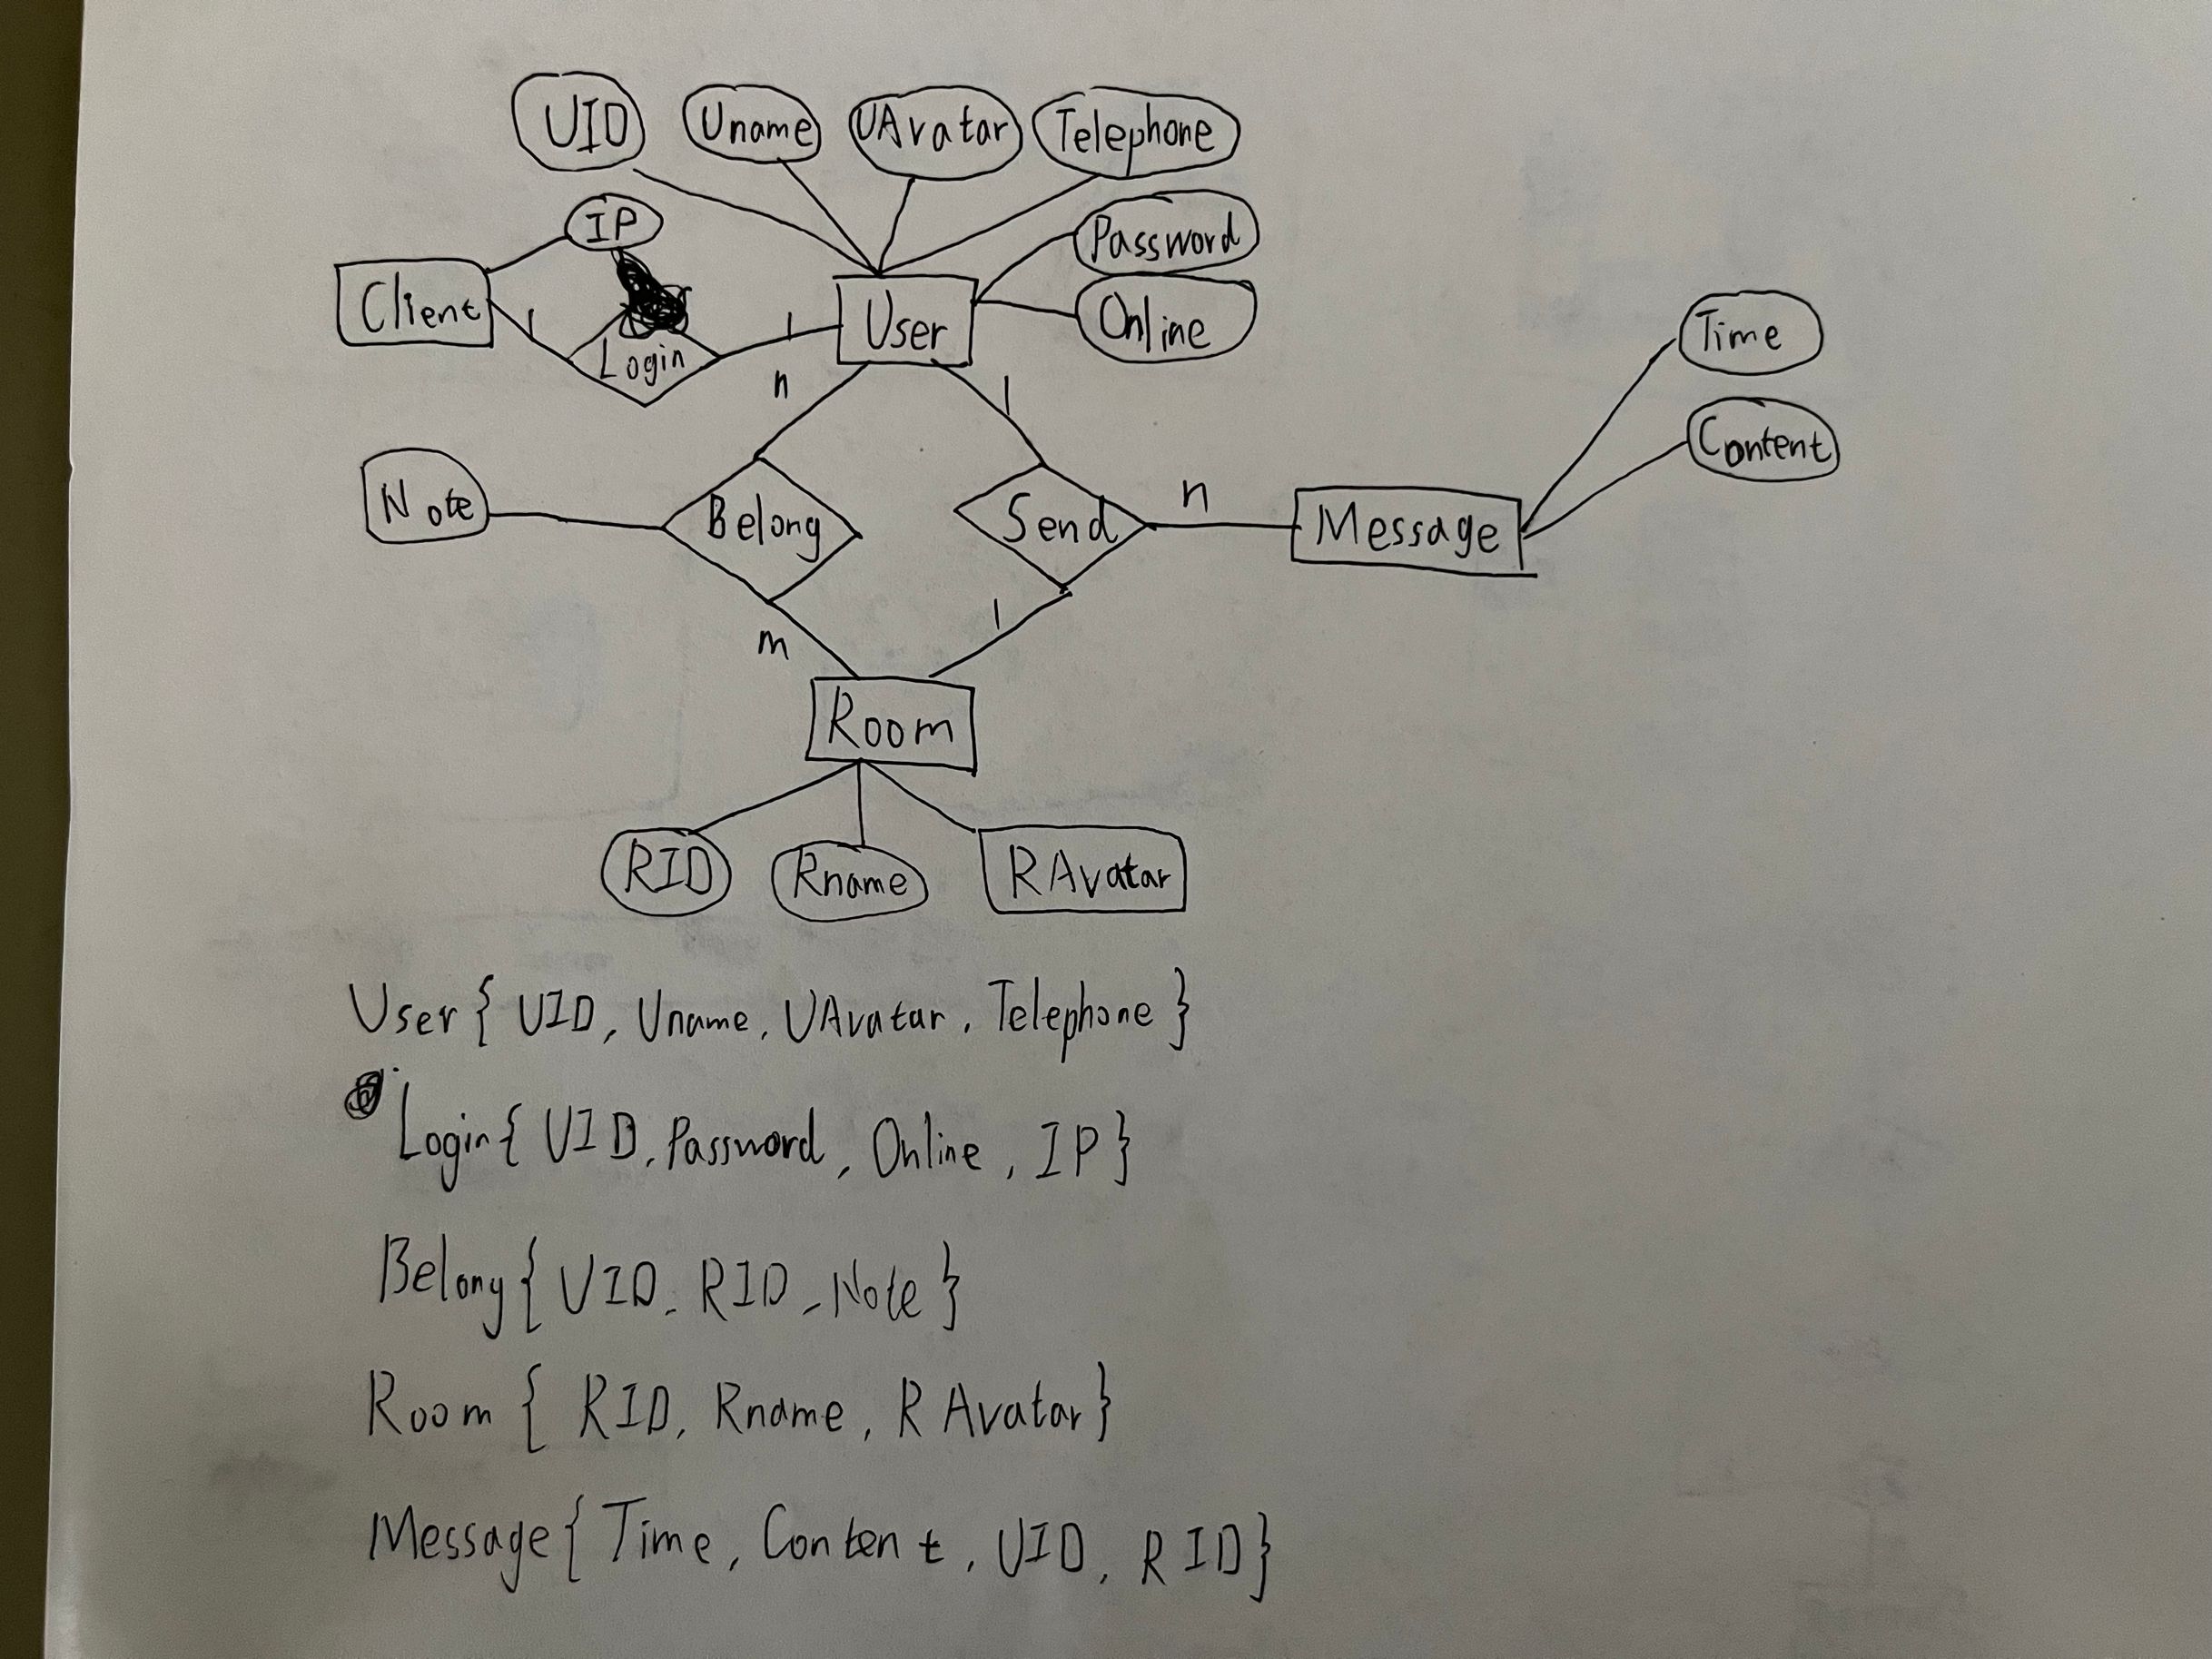 UID Uname UAvatar Telephone
IP Password
Client 1 Login 1 User Online
Time
n 1
Content
Note Belong Send n Message
m 1
Room
RID Rname RAvatar
User { UID, Uname, UAvatar, Telephone }
Login { UID, Password, Online, IP }
Belong { UID, RID, Note }
Room { RID, Rname, RAvatar }
Message { Time, Content, UID, RID }